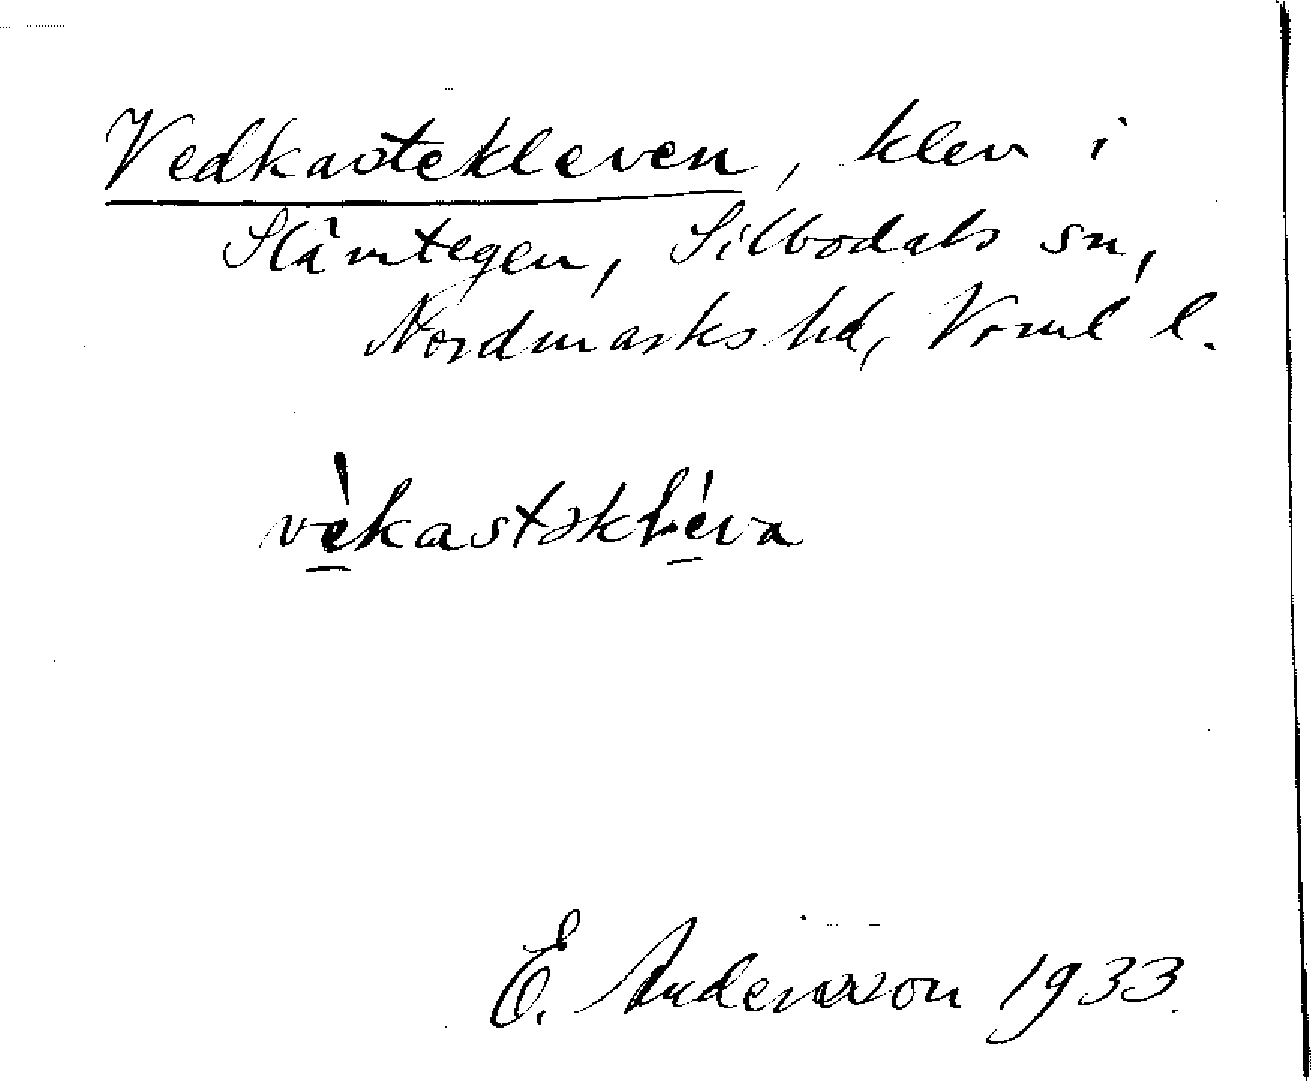 Vedkastekleven, klev i
Slämtegen, Silbodals sn,
Nordmarks hd, Vrml l.
vèkastəkḷéva
E. Andersson 1933.